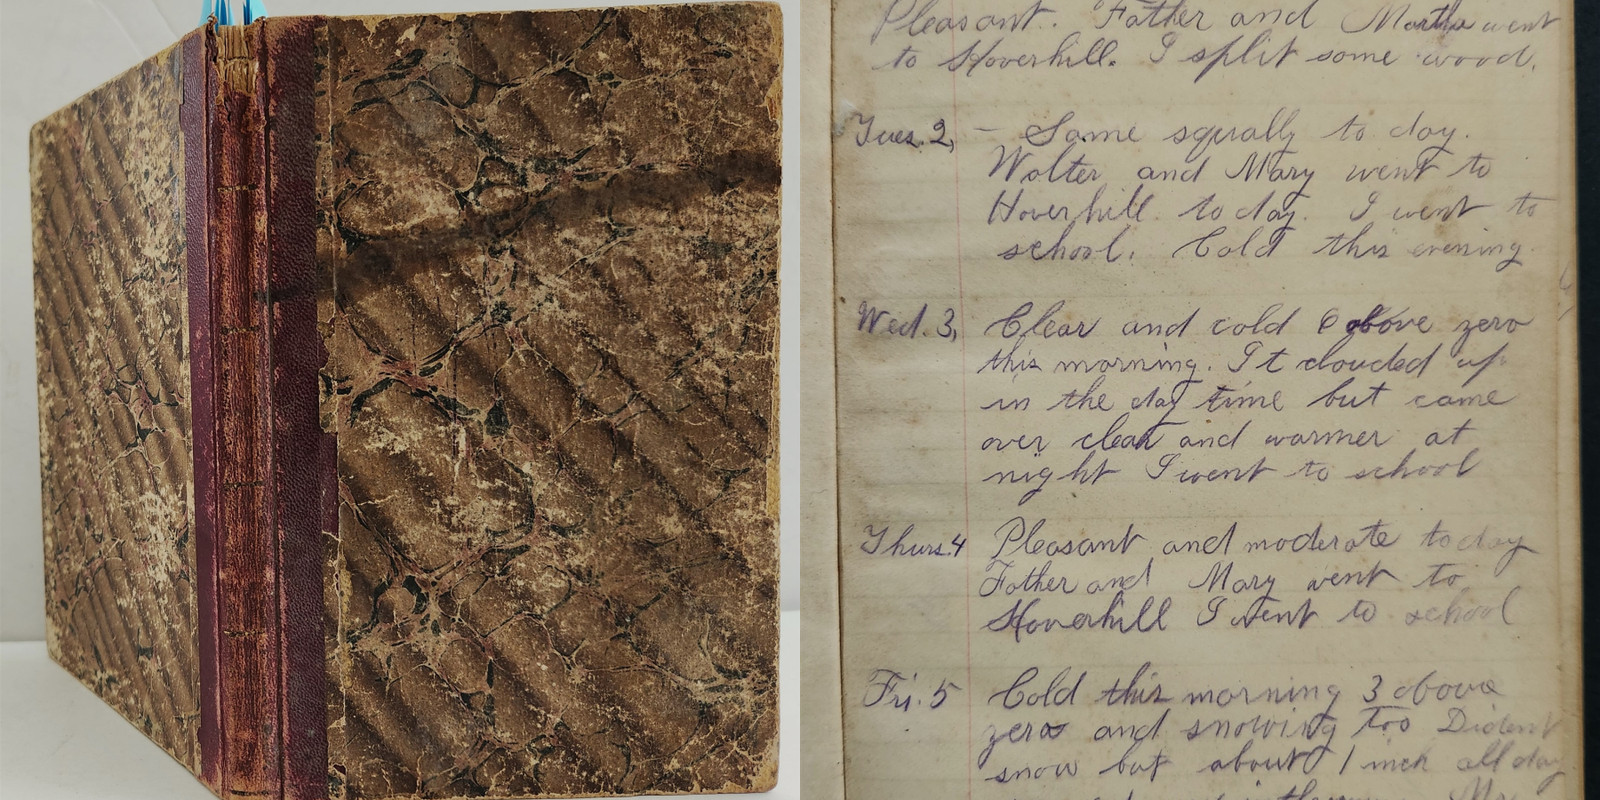 Pleasant. Father and Martha went
to Haverhill. I split some wood.
Tues. 2, - Some squally to day.
Walter and Mary went to
Haverhill to day. I went to
school. Cold this evening
Wed. 3, Clear and cold 6 above zero
this morning. It clouded up
in the day time but came
over clear and warmer at
night I went to school
Thurs. 4 Pleasant and moderate to day
Father and Mary went to
Haverhill I went to school
Fri. 5 Cold this morning 3 above
zero and snowing too Dident
snow but about 1 inch all day